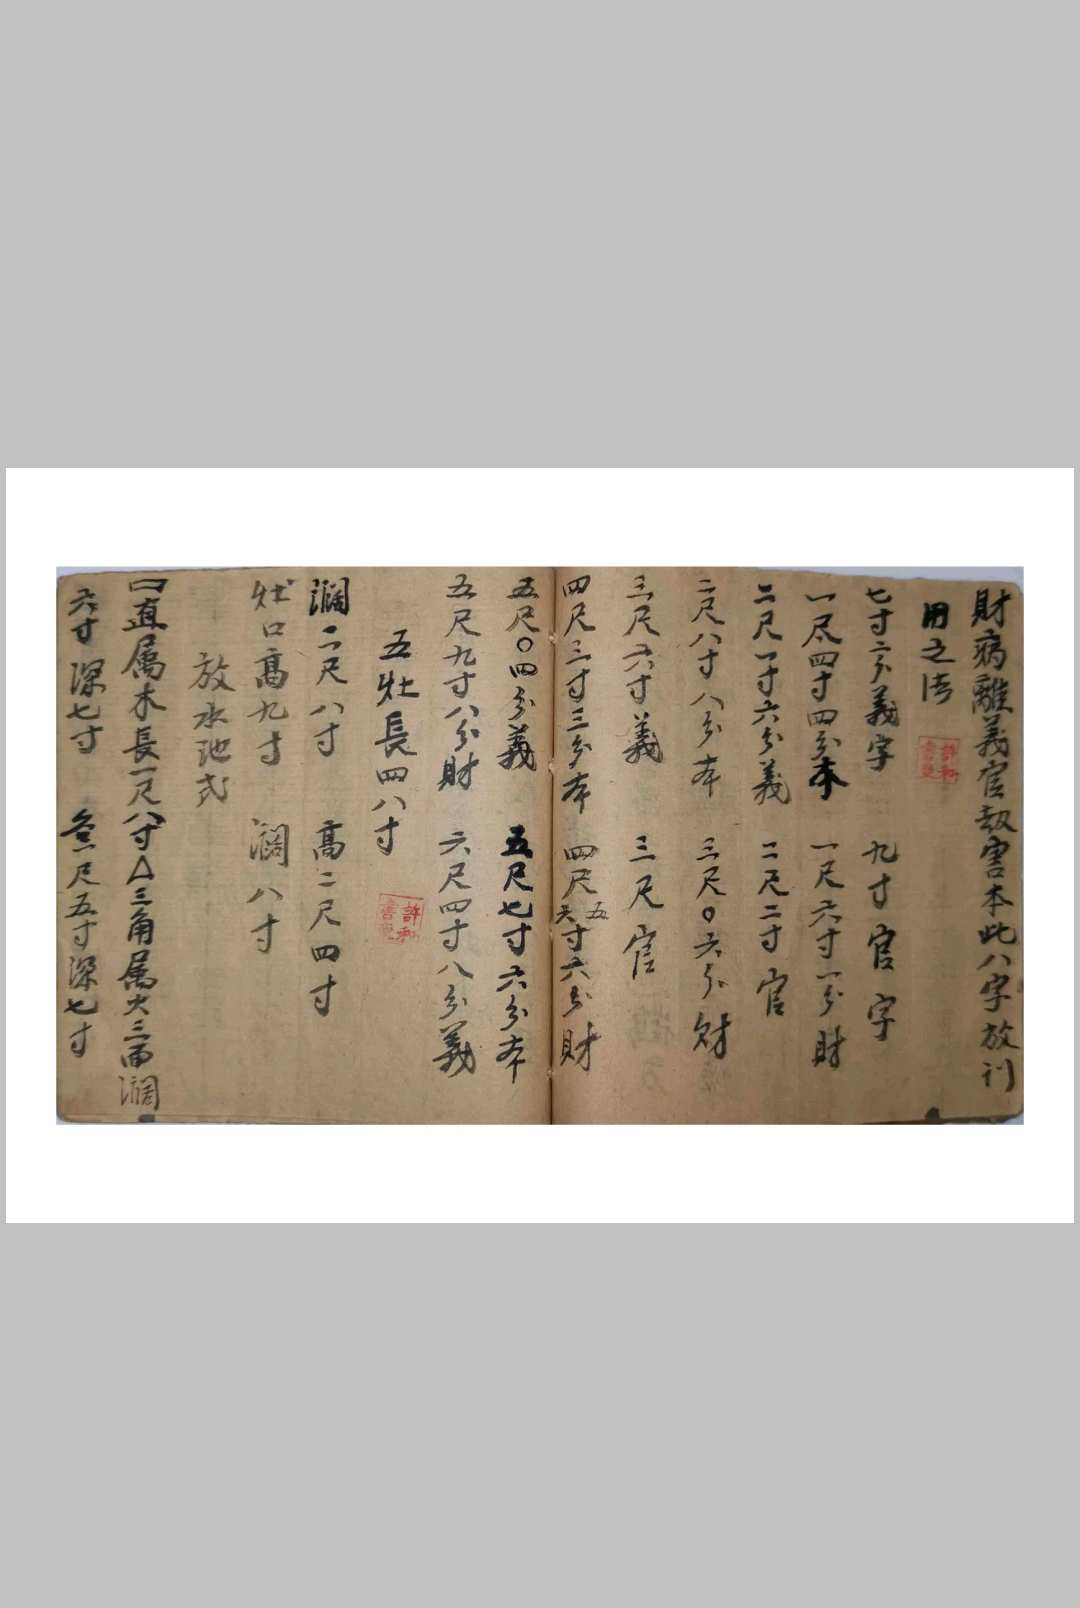 財病離義官刼害本此八字放刊
用之法
七寸二分義字 九寸官字
一尺四寸四分本 一尺六寸一分財
二尺一寸六分義 二尺二寸官
二尺八寸八分本 三尺〇六分財
三尺六寸義 三尺官
四尺三寸三分本 四尺五六寸六分財
五尺〇四分義 五尺七寸六分本
五尺九寸八分財 六尺四寸八分義
五灶長四八寸
濶二尺八寸 高二尺四寸
灶口高九寸 濶八寸
放水池式
口直属木長一尺八寸△三角属火三面濶
六寸深七寸 尺五寸深七寸